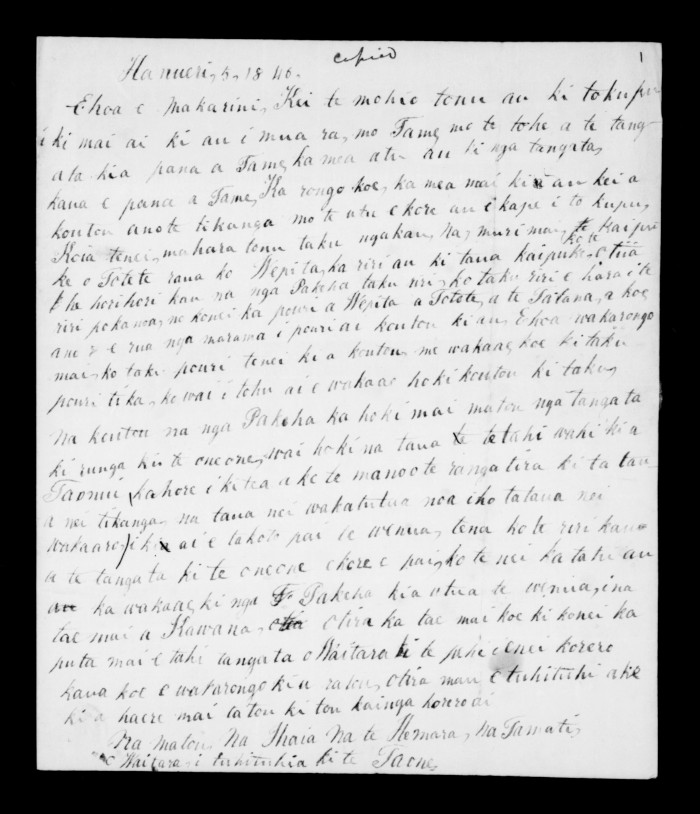 copied
1
Hanueri, 5, 1846.
Ehoa e Makarini, Kei te mohio tonu au ki tokupu
i ki mai ai ki au i mua ra, mo Tame, mo te tohe a te tang-
ata kia pana a Tame, ka mea atu au ki nga tangata,
kaua e pana a Tame, Ka rongo koe, ka mea mai ki au kei a
koutou ano te tikanga mo te utu ekore au e kape i to kupu,
Koia tenei, mahara tonu taku ngakau, Na, muri mai, te Kaipu
ke o Totete rana ko Wepita, ka riri au ki tana kaipuke, otiia ko te
he horihori kau na nga Pakeha taku riri, ko taku riri e hara i te
riri pokanoa, no konei ka pouri a Wepita a Totete, a te Tatana, a koe
ano e rua nga marama i pouri ai koutou ki au, Ehoa wakarongo
mai, ko taku pouri tenei ki a koutou, me wakaae, koe ki taku
pouri tika, ko wai i tohu ai e wakaae hoki koutou ki taku,
Na koutou na nga Pakeha ka hoki mai matou nga tangata
ki runga ki te oneone, wai hoki na tana te tetahi wahi ki a
Taonui, kahore i kitea ake te manoo te rangatira ki ta tau-
a nei tikanga, na tana nei wakatutua noa iho tataua nei
wakaaro, i kia ai e takoto pai te wenua, tena ko te riri kau
a te tangata ki te oneone ekore e pai, ko te nei ka tahi au
ka wakaae, ki nga Pakeha kia utua te wenua, ina
tae mai a Kawana, otira ka tae mai koe ki konei ka
puta mai e tahi tangata o Waitara ki te pahi enei korero
kaua koe e wakarongo ki a ratou, otira mau e tuhituhi ake
ki a haere mai tatou ki tou kainga korero ai
Na matou, Na Ihaia Na te Kemara, Na Tamati,
Waitara, i tuhituhia ki te Taone,